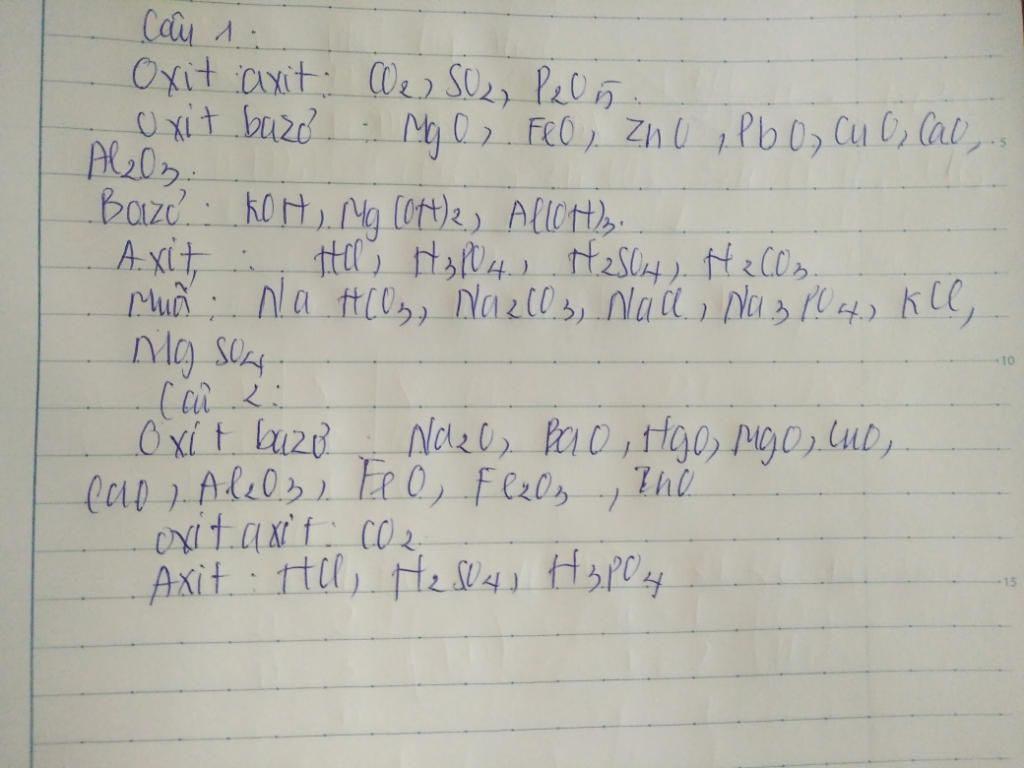 Câu 1:
Oxit axit: CO2, SO2, P2O5.
Oxit bazơ : MgO, FeO, ZnO, PbO, CuO, CaO,
Al2O3.
Bazơ: KOH, Mg(OH)2, Al(OH)3.
Axit : HCl, H3PO4, H2SO4, H2CO3.
Muối: NaHCO3, Na2CO3, NaCl, Na3PO4, KCl,
MgSO4
Câu 2:
Oxit bazơ : Na2O, BaO, HgO, MgO, CuO,
CaO, Al2O3, FeO, Fe2O3, ZnO
oxit axit: CO2
Axit: HCl, H2SO4, H3PO4
5
10
15